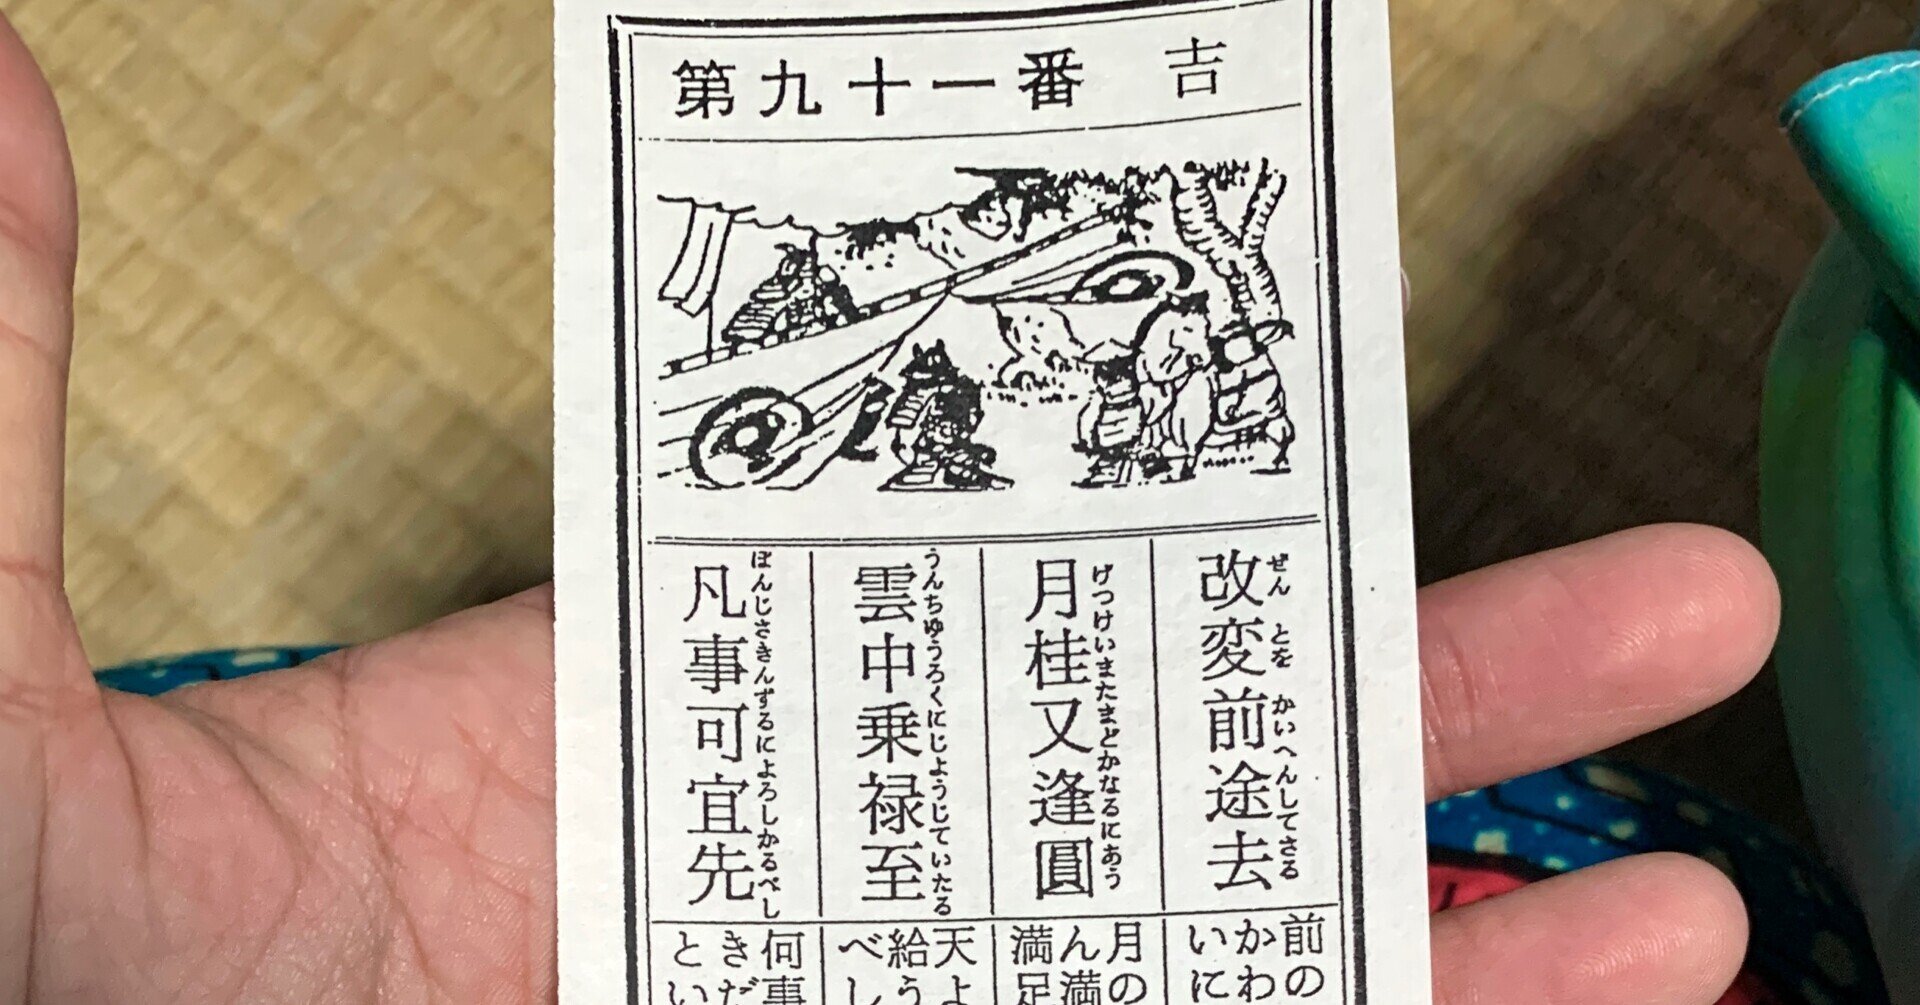 第九十一番 吉
改変前途去
ぜん とを かいへんしてさる
月桂又逢圓
げつけいまたまどかなるにあう
雲中乗禄至
うんちゆうろくにじようじていたる
凡事可宜先
ぼんじさきんずるによろしかるべし
前の
かわ
いに
月の
ん満
満足
天よ
給う
べし
何事
きだ
とい